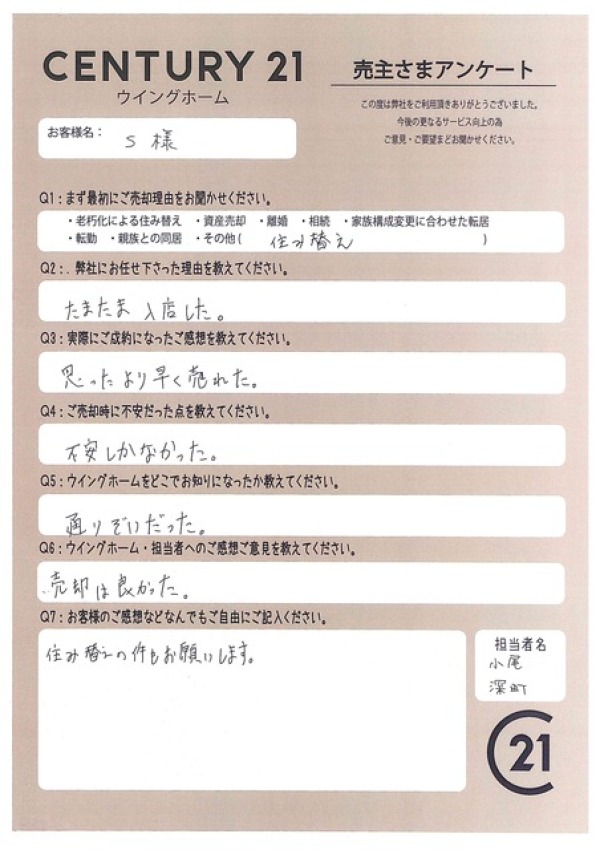 CENTURY 21
ウイングホーム
売主さまアンケート
この度は弊社をご利用頂きありがとうございました。
今後の更なるサービス向上の為
ご意見・ご要望まどお聞かせください。
お客様名： S 様
Q1：まず最初にご売却理由をお聞かせください。
・老朽化による住み替え ・資産売却 ・離婚 ・相続 ・家族構成変更に合わせた転居
・転勤 ・親族との同居 ・その他( 住み替え )
Q2：. 弊社にお任せ下さった理由を教えてください。
たまたま 入店した。
Q3：実際にご成約になったご感想を教えてください。
思ったより早く売れた。
Q4：ご売却時に不安だった点を教えてください。
不安しかなかった。
Q5：ウイングホームをどこでお知りになったか教えてください。
通りぞいだった。
Q6：ウイングホーム・担当者へのご感想ご意見を教えてください。
売却は良かった。
Q7：お客様のご感想などなんでもご自由にご記入ください。
住み替えの件もお願いします。
担当者名
小尾
深町
C21